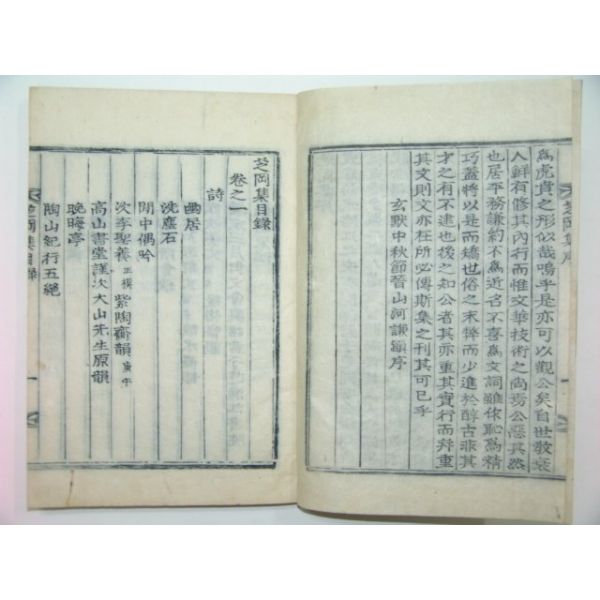 為虎賁之形似哉嗚乎是亦可以觀公矣自世敎衰
人鮮有修其內行而惟文華技術之尙焉公惡其然
也居平務謙約不爲近名不喜爲文詞雖依恥爲精
巧蓋將以是而矯也俗之末弊而少進於醇古非其
才之有不逮也後之知公者其亦重其實行而幷重
其文則文亦在所必傳斯集之刊其可已乎
玄黓中秋節晉山河謙鎭序
芝岡集序
一
芝岡集目錄
卷之一
詩
幽居
洗塵石
閒中偶吟
次李聖養 正模 紫陶齋韻 庚午
高山書堂謹次大山先生原韻
晩晦亭
陶山紀行五絕
芝岡集目錄
一